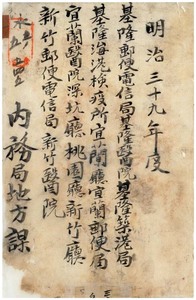 明治三十九年度
基隆郵便電信局基隆醫院基隆築港局
基隆海港檢疫所宜蘭廳宜蘭郵便局
宜蘭醫院深坑廳桃園廳新竹廳
新竹郵便電信局新竹醫院
内務局地方課